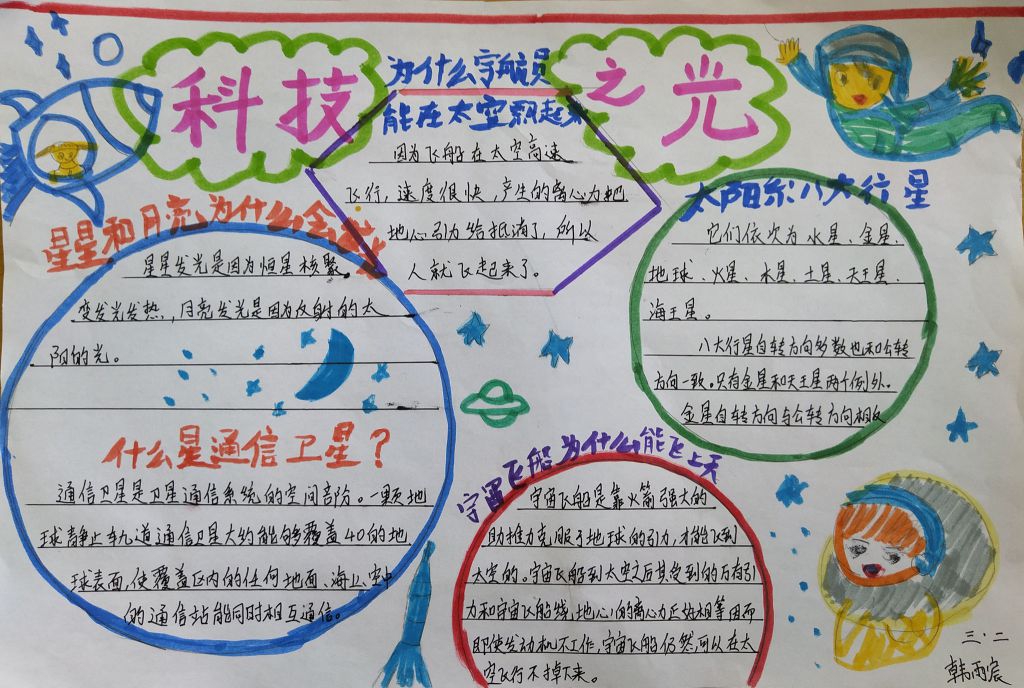 科技之光
为什么宇航员
能在太空飘起来
因为飞船在太空高速
飞行，速度很快，产生的离心力把
地心引力给抵消了，所以
人就飞起来了。
星星和月亮为什么会
星星发光是因为恒星核聚
变发光发热，月亮发光是因为反射的太
阳的光。
什么是通信卫星？
通信卫星是卫星通信系统的空间部份。一颗地
球静止轨道通信卫星大约能够覆盖40的地
球表面，使覆盖区内的任何地面、海上、空中
的通信站能同时相互通信。
太阳系八大行星
它们依次为水星、金星、
地球、火星、水星、土星、天王星、
海王星。
八大行星自转方向多数也和公转
方向一致。只有金星和天王星两个例外。
金星自转方向与公转方向相反
宇宙飞船为什么能飞上天
宇宙飞船是靠火箭强大的
助推力克服了地球的引力，才能飞到
太空的。宇宙飞船到太空之后其受到的万有引
力和宇宙飞船绕地心的离心力正好相等因而
即使发动机不工作，宇宙飞船仍然可以在太
空飞行不掉下来。
三·二
韩雨宸